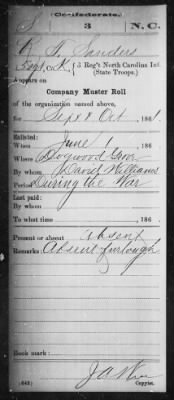 Confederate.
S 3 N.C.
Sanders
3 Reg't North Carolina Inf.
(State Troops.)
Appears on
Company Muster Roll
of the organization named above,
for Sept & Oct, 1861
Enlisted:
When June 1, 186
Where Dogwood Grov
By whom David Williams
Period During the War
Last paid:
By whom
To what time , 186
Present or absent Absent
Remarks: Absent furlough
Book mark:
(642) Copyist.